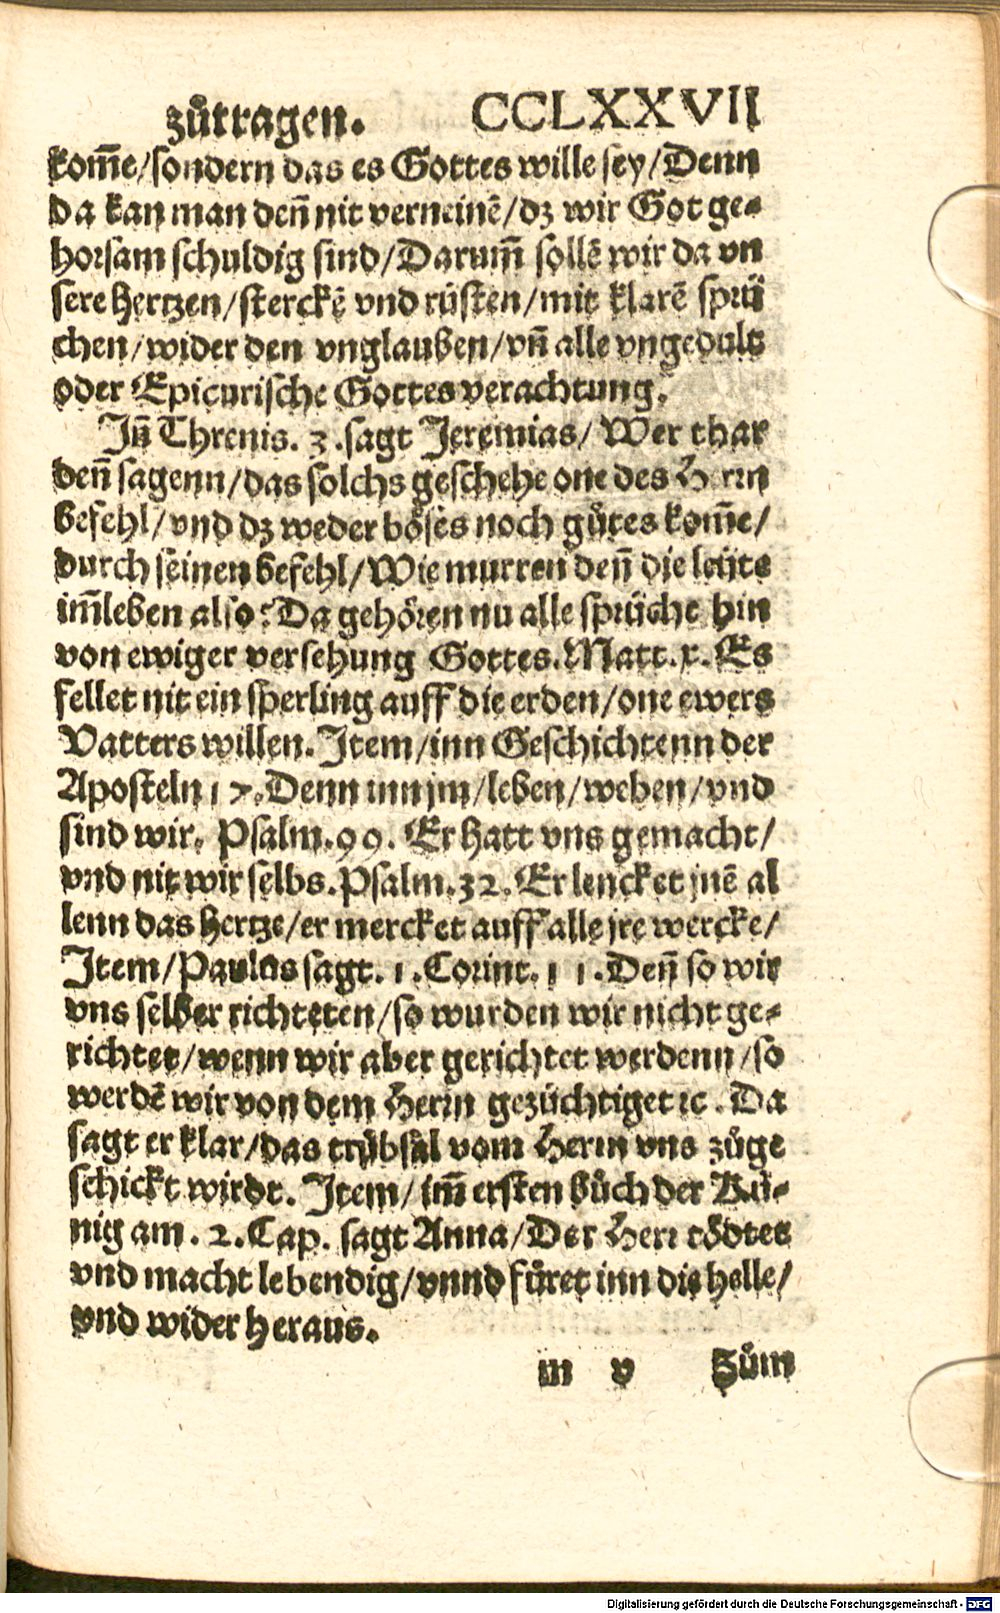 zůtragen. CCLXXVII
kom̃e/sondern das es Gottes wille sey/Denn
da kan man deñ nit verneinē/dz wir Got ge-
horsam schuldig sind/Darum̃ sollē wir da vn
sere hertzen/sterckē vnd rüsten/mit klarē sprü
chen/wider den vnglauben/vñ alle vngedult
oder Epicurische Gottes verachtung.
Jñ Threnis. 3. sagt Jeremias/Wer thar
deñ sagenn/das solchs geschehe one des Herrn
befehl/vnd dz weder böses noch gůtes kom̃e/
durch seinen befehl/Wie murren deñ die leüte
im̃leben also? Da gehören nu alle sprüche hin
von ewiger versehung Gottes. Matt. x. Es
fellet nit ein sperling auff die erden/one ewers
Vatters willen. Item/inn Geschichtenn der
Aposteln 17. Denn inn jm/leben/weben/vnd
sind wir. Psalm. 99. Er hatt vns gemacht/
vnd nit wir selbs. Psalm. 32. Er lencket jnē al
lenn das hertze/er mercket auff alle jre wercke/
Item/Paulus sagt. 1. Corint. 11. Deñ so wir
vns selber richteten/so wurden wir nicht ge-
richtet/wenn wir aber gerichtet werdenn/so
werdē wir von dem Herrn gezüchtiget ꝛc. Da
sagt er klar/das trübsal vom Herrn vns zůge
schickt wirdt. Item/im̃ ersten bůch der Kü-
nig am. 2. Cap. sagt Anna/Der Herr tödtet
vnd macht lebendig/vnnd füret inn die helle/
vnd wider heraus.
m v Zům
Digitalisierung gefördert durch die Deutsche Forschungsgemeinschaft - DFG